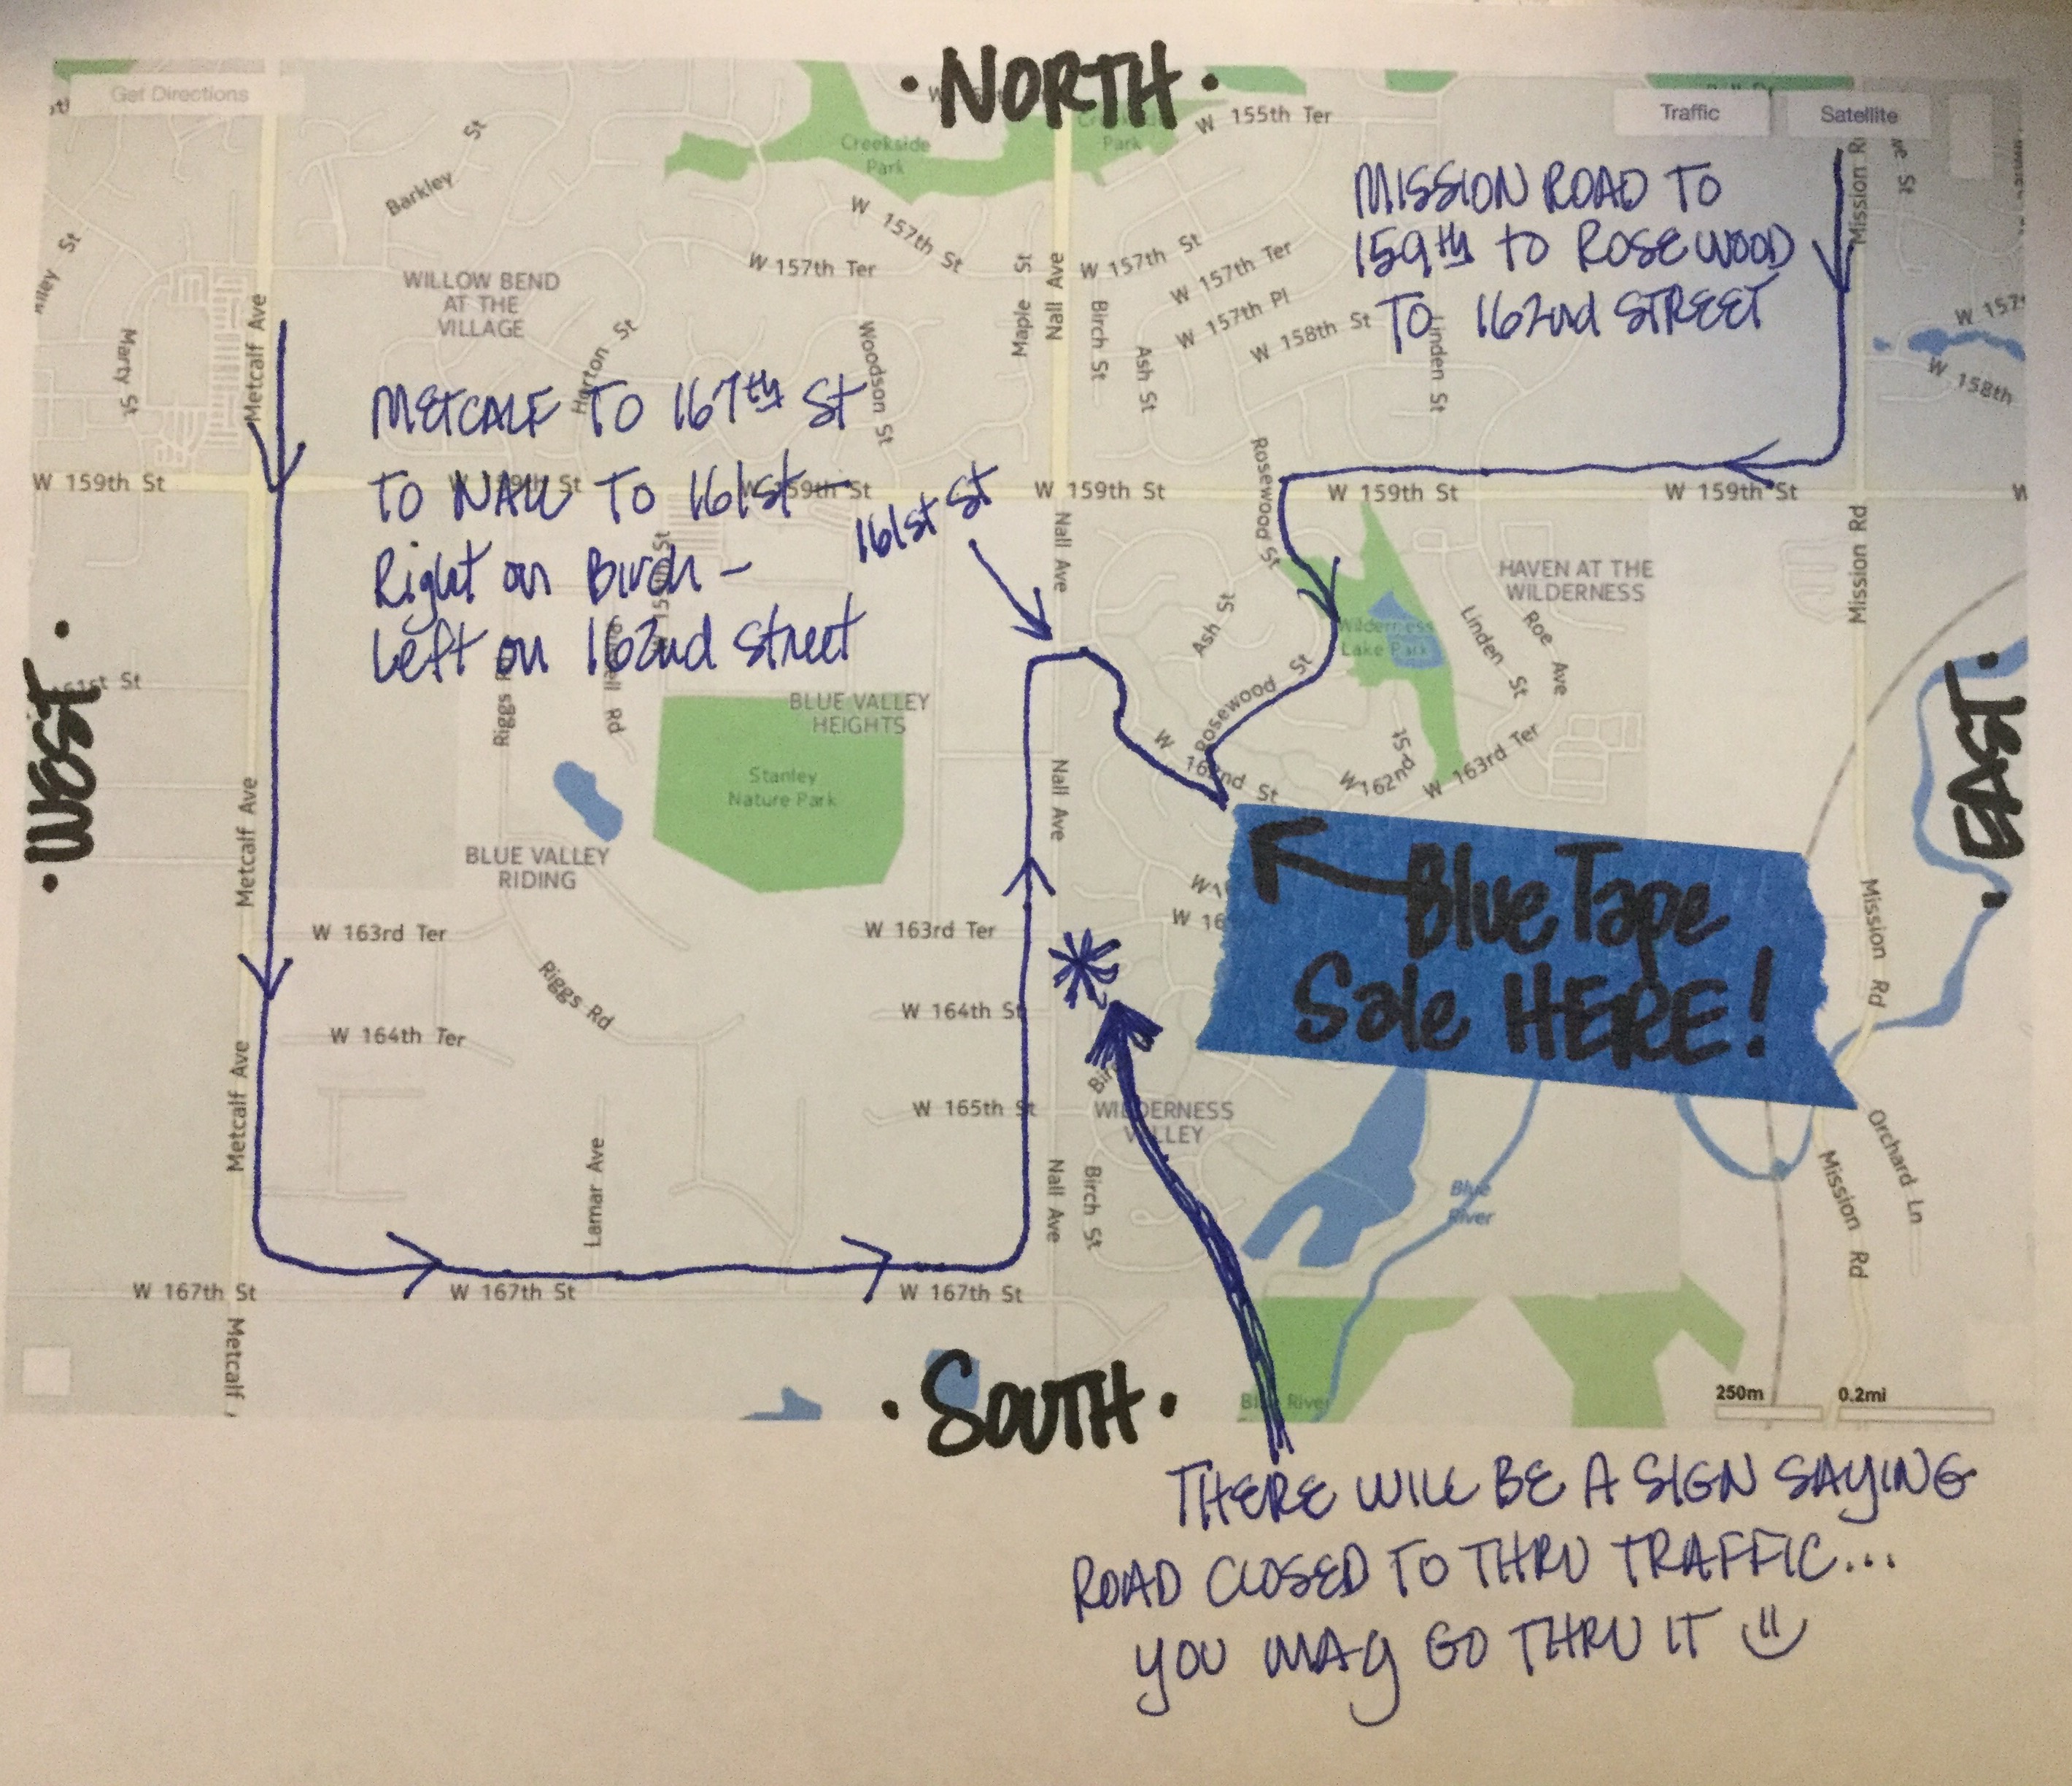 • NORTH •
Get Directions
Traffic
Satellite
Creekside
Park
W 155th Ter
Barkley St
W 157th St
W 157th Ter
W 157th St
W 157th Ter
W 157th Pl
W 158th St
W 158th
MISSION ROAD TO
159th to ROSEWOOD
TO 162nd STREET
Mission Rd
WILLOW BEND
AT THE
VILLAGE
Metcalf Ave
Marty St
Horton St
Woodson St
Maple St
Nall Ave
Birch St
Ash St
Linden St
METCALF TO 167th St
TO NALL TO 161st –
Right on Birch –
Left on 162nd Street
161st St
W 159th St
W 159th St
W 159th St
W 159th St
W 159th St
W 159th St
Rosewood St
Nall Ave
Mission Rd
HAVEN AT THE
WILDERNESS
Wilderness
Lake Park
Ash St
Linden St
Roe Ave
Rosewood St
W 162nd St
W 162nd St
W 163rd Ter
• WEST •
• EAST •
161st St
Riggs Rd
BLUE VALLEY
HEIGHTS
Stanley
Nature Park
Nall Ave
Metcalf Ave
BLUE VALLEY
RIDING
W 163rd Ter
W 163rd Ter
Riggs Rd
W 164th St
W 164th Ter
Blue Tape
Sale HERE!
Mission Rd
Metcalf Ave
W 165th St
WILDERNESS
VALLEY
Lamar Ave
Nall Ave
Birch St
Blue
River
Orchard Ln
Mission Rd
W 167th St
W 167th St
W 167th St
Metcalf
• SOUTH •
Blue River
250m
0.2mi
THERE WILL BE A SIGN SAYING
ROAD CLOSED TO THRU TRAFFIC...
YOU MAY GO THRU IT